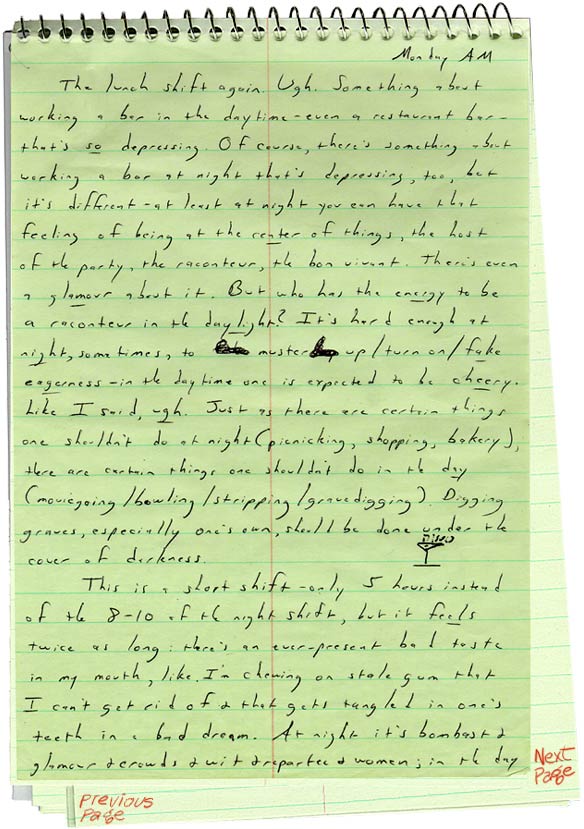 Monday AM
The lunch shift again. Ugh. Something about
working a bar in the daytime - even a restaurant bar -
that's so depressing. Of course, there's something about
working a bar at night that's depressing, too, but
it's different - at least at night you can have that
feeling of being at the center of things, the host
of the party, the raconteur, the bon vivant. There's even
a glamour about it. But who has the energy to be
a raconteur in the daylight? It's hard enough at
night, sometimes, to muster up/turn on/fake
eagerness - in the daytime one is expected to be cheery.
Like I said, ugh. Just as there are certain things
one shouldn't do at night (picnicking, shopping, bakery),
there are certain things one shouldn't do in the day
(moviegoing/bowling/stripping/gravedigging). Digging
graves, especially one's own, should be done under the
cover of darkness.
This is a short shift - only 5 hours instead
of the 8-10 of the night shift, but it feels
twice as long: there's an ever-present bad taste
in my mouth, like I'm chewing on stale gum that
I can't get rid of & that gets tangled in one's
teeth in a bad dream. At night it's bombast &
glamour & crowds & wit & repartee & women; in the day
Next
Page
Previous
Page